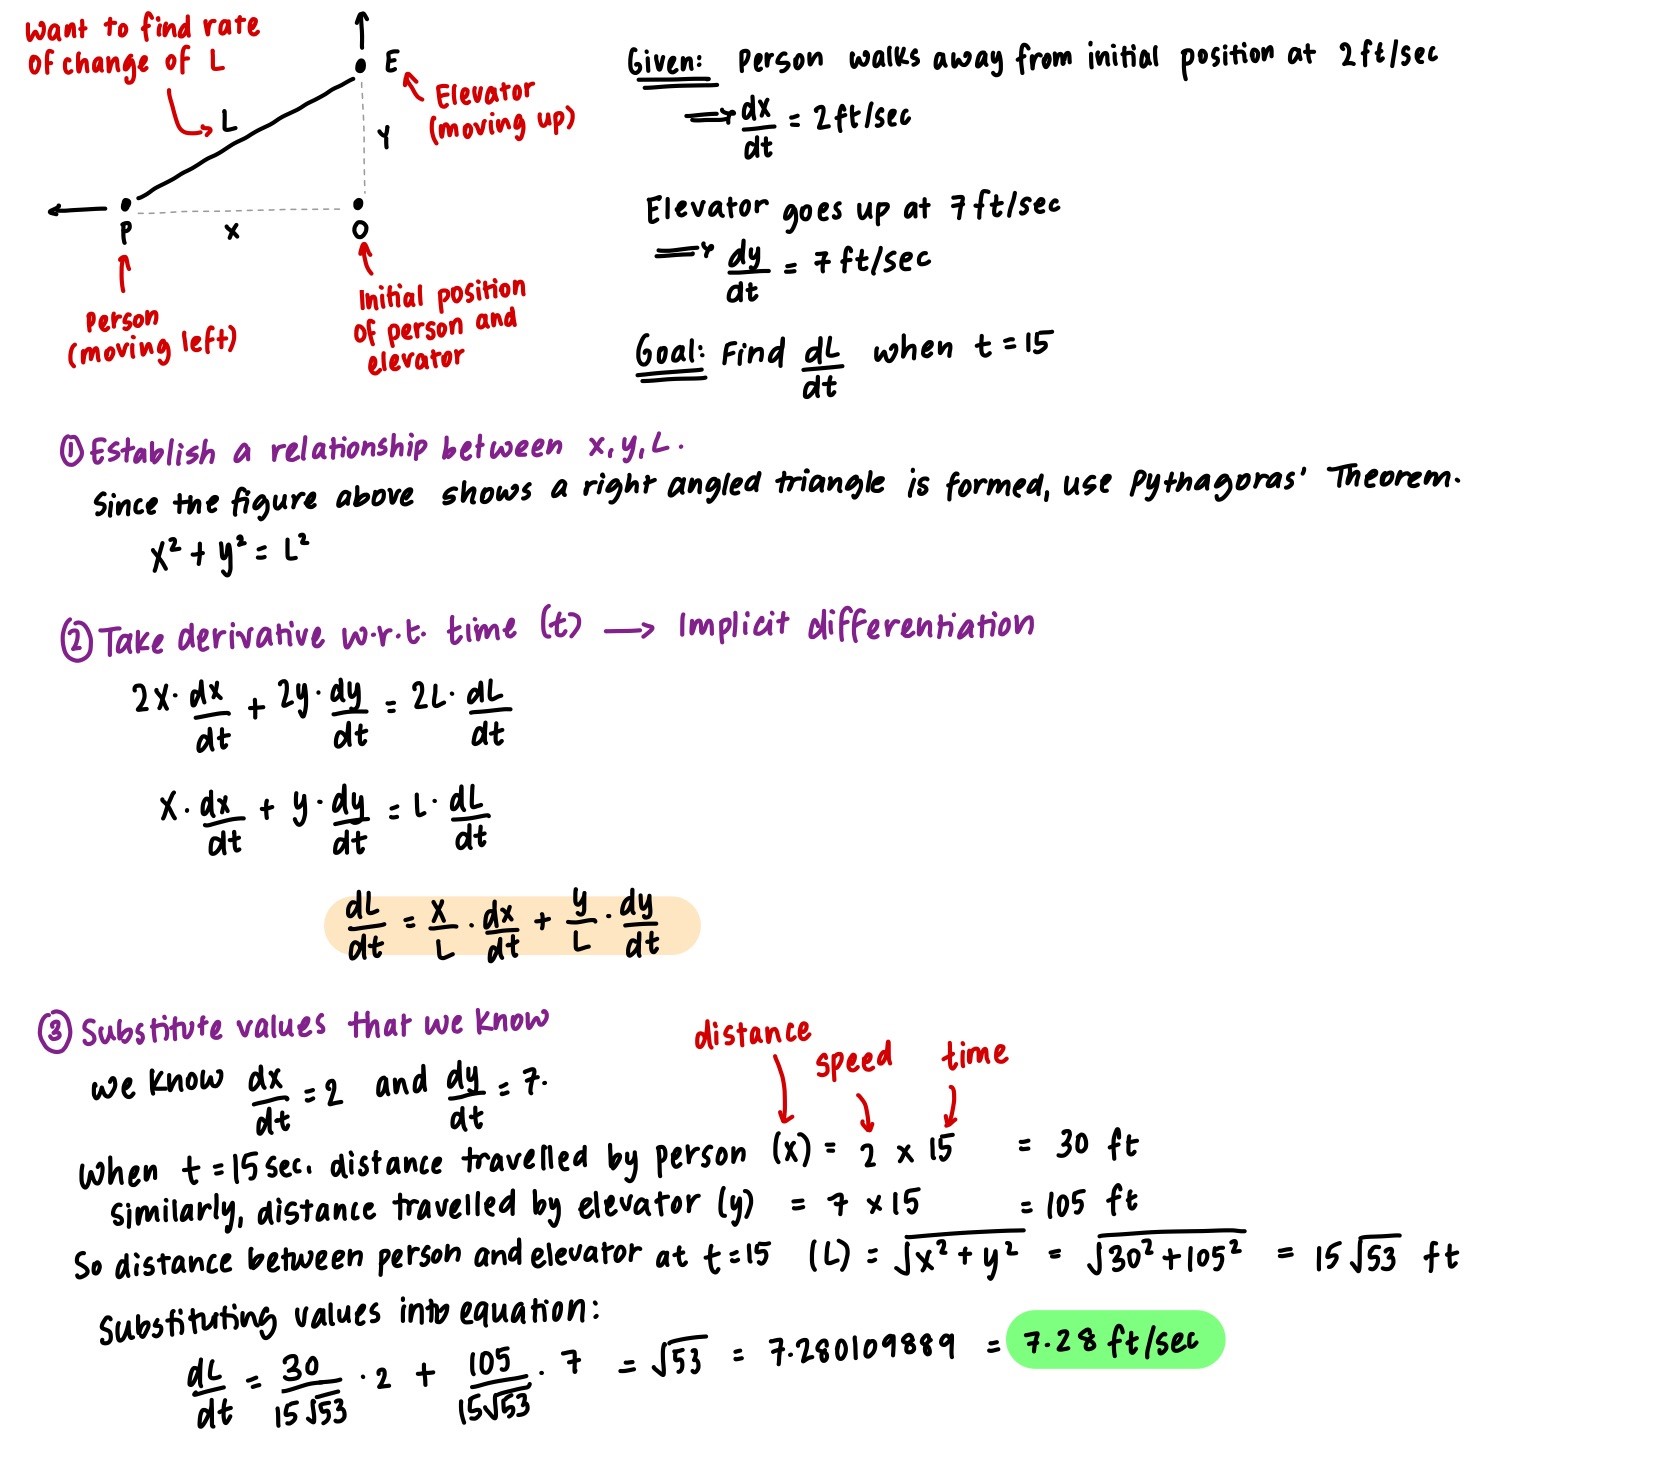 Want to find rate
of change of L
L
E
Elevator
(moving up)
y
P
x
O
Person
(moving left)
Initial position
of person and
elevator
Given: Person walks away from initial position at 2ft/sec
⟹ dx/dt = 2ft/sec
Elevator goes up at 7ft/sec
⟹ dy/dt = 7 ft/sec
Goal: Find dL/dt when t = 15
① Establish a relationship between x, y, L.
Since the figure above shows a right angled triangle is formed, use Pythagoras' Theorem.
x² + y² = L²
② Take derivative w.r.t. time (t) → Implicit differentiation
2x · dx/dt + 2y · dy/dt = 2L · dL/dt
x · dx/dt + y · dy/dt = L · dL/dt
dL/dt = x/L · dx/dt + y/L · dy/dt
③ Substitute values that we know
we know dx/dt = 2 and dy/dt = 7.
distance
speed
time
when t = 15 sec. distance travelled by person (x) = 2 × 15 = 30 ft
Similarly, distance travelled by elevator (y) = 7 × 15 = 105 ft
So distance between person and elevator at t = 15 (L) = √(x² + y²) = √(30² + 105²) = 15√53 ft
Substituting values into equation:
dL/dt = 30/(15√53) · 2 + 105/(15√53) · 7 = √53 = 7.280109889 = 7.28 ft/sec